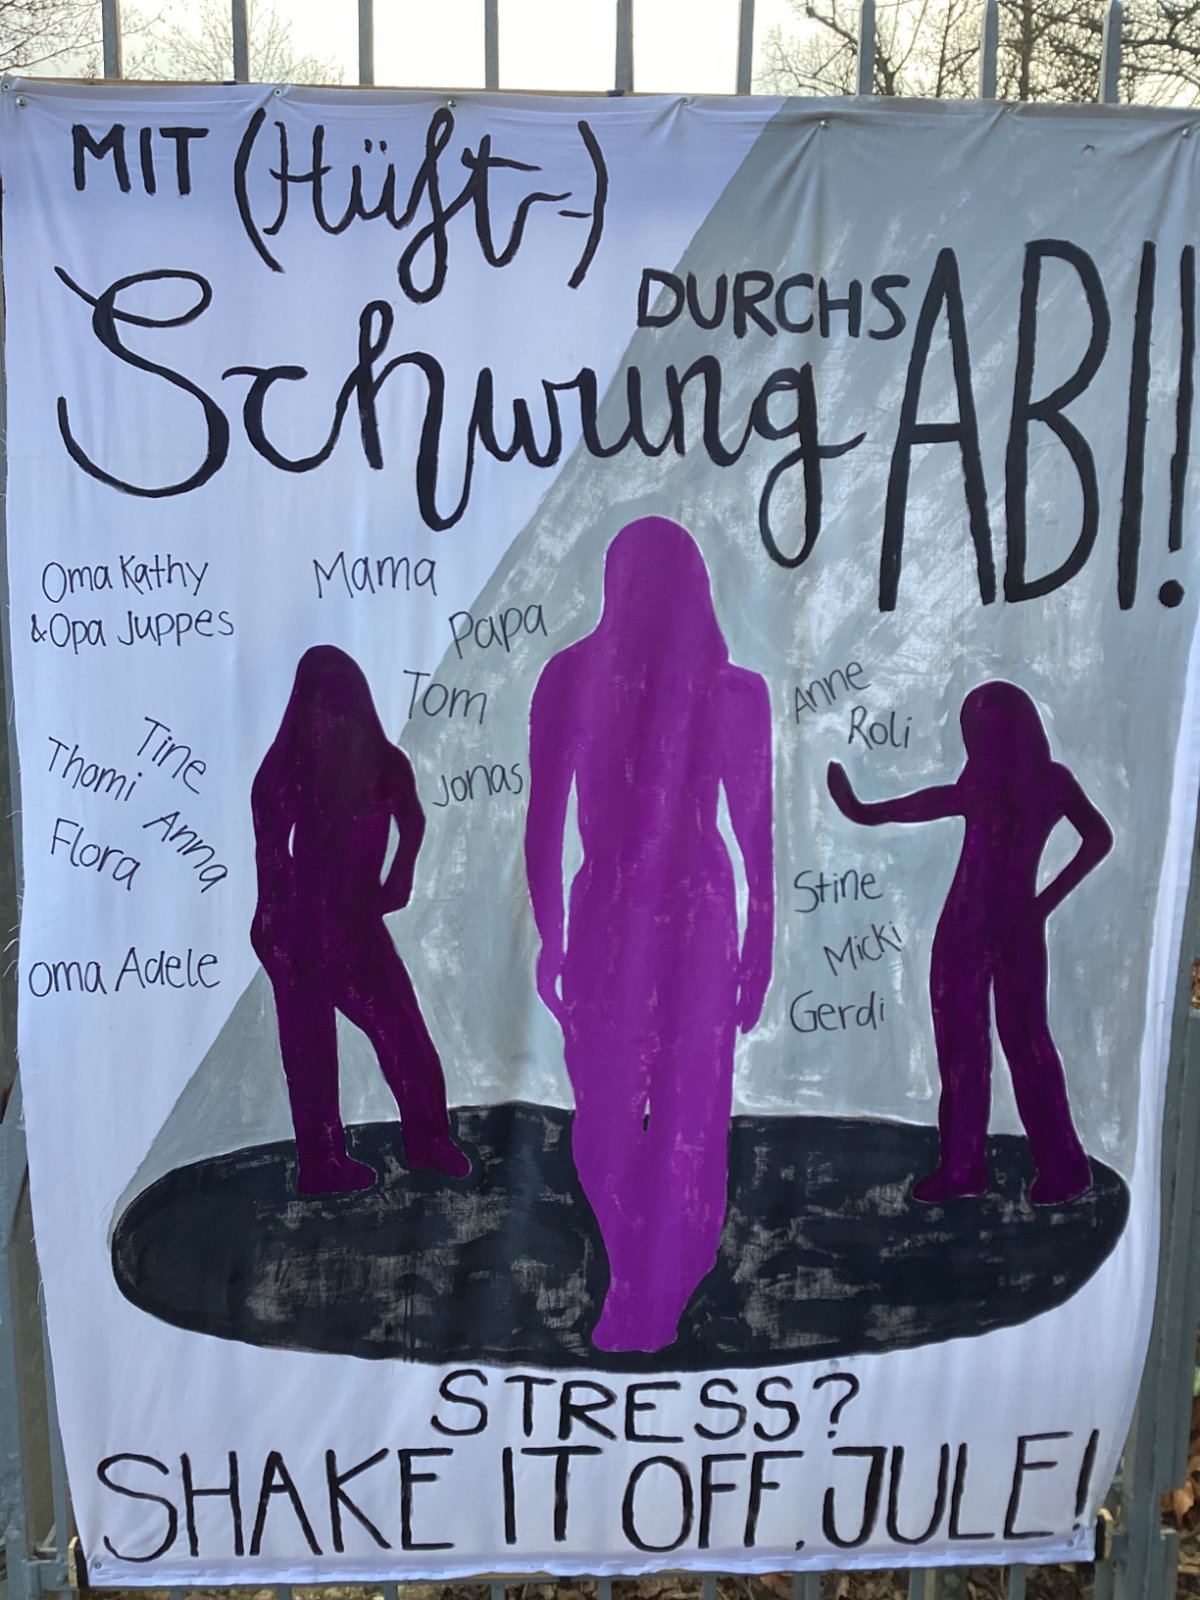 MIT (Hüft-)
Schwung DURCHS ABI!
Oma Kathy
& Opa Juppes
Mama
Papa
Tom
Jonas
Tine
Thomi
Anna
Flora
Oma Adele
Anne
Roli
Stine
Micki
Gerdi
STRESS?
SHAKE IT OFF, JULE!